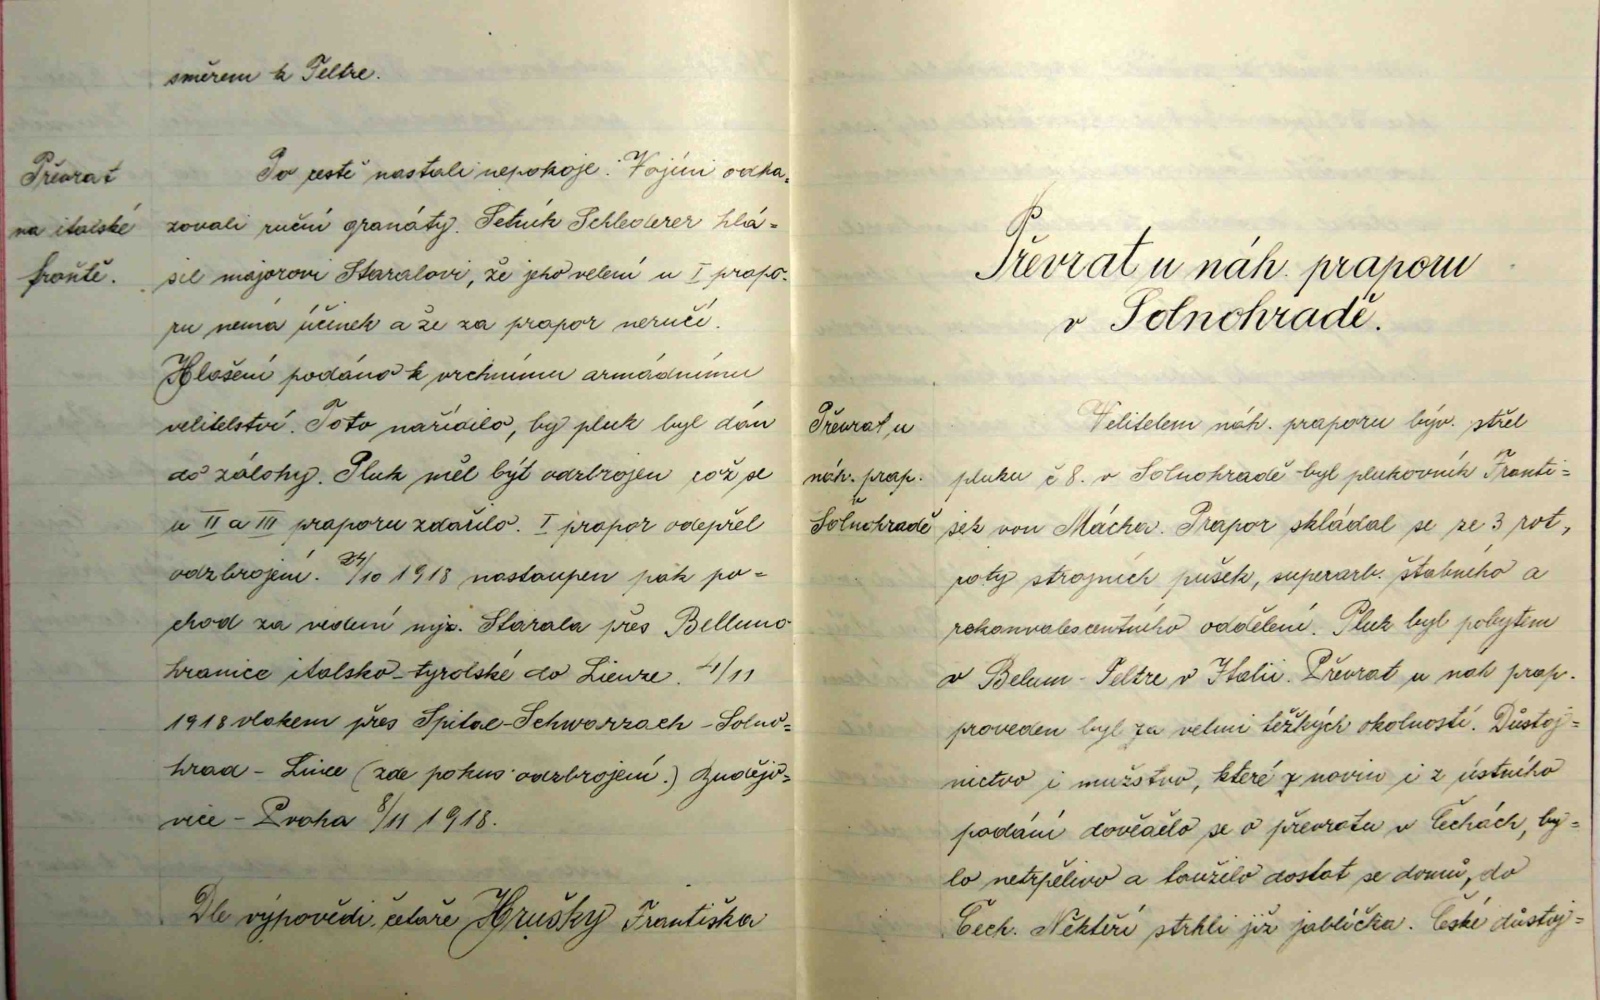 směrem k Feltre.
Převrat
na italské
frontě.
Po cestě nastali nepokoje. Vojíni odha-
zovali ruční granáty. Setník Schlederer hlá-
sil majorovi Staralovi, že jeho velení u I prapo-
ru nemá účinek a že za prapor neručí.
Hlášení podáno k vrchnímu armádnímu
velitelství. Toto nařídilo, by pluk byl dán
do zálohy. Pluk měl být odzbrojen což se
u II a III praporu zdařilo. I prapor odepřel
odzbrojení. 24/10 1918 nastoupen pak po-
chod za vedení mjr. Starala přes Belluno
hranice italsko-tyrolské do Lienze. 4/11
1918 vlakem přes Spital-Schwarzach-Solno-
hrad - Linec (zde pokus odzbrojení.) Budějo-
vice - Praha 8/11 1918.
Dle výpovědi četaře Hrušky Františka
Převrat u náh. praporu
v Solnohradě.
Převrat u
náh. prap.
v
Solnohradě
Velitelem náh. praporu býv. střel
pluku č 8. v Solnohradě byl plukovník Franti-
šek von Mácha. Prapor skládal se ze 3 rot,
roty strojních pušek, superarb. štabního a
rekonvalescentního oddělení. Pluk byl pobytem
v Belum - Feltre v Italii. Převrat u nah prap.
proveden byl za velmi těžkých okolností. Důstoj-
nictvo i mužstvo, které z novin i z ústního
podání dovědělo se o převratu v Čechách, by-
lo netrpělivo a toužilo dostat se domů, do
Čech. Někteří strhli již jablíčka. České důstoj-